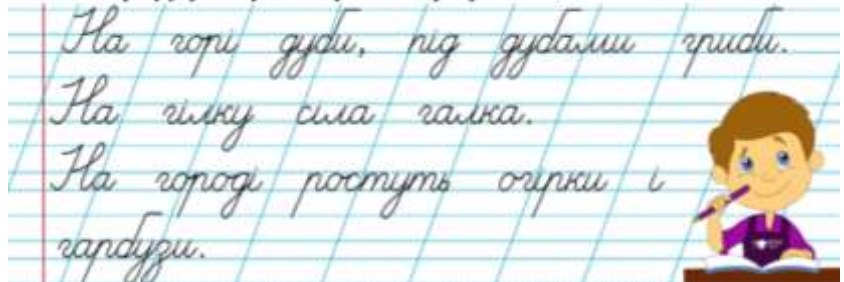 На горі дуби, під дубами гриби.
На гілку сіла галка.
На городі ростуть огірки і
гарбузи.